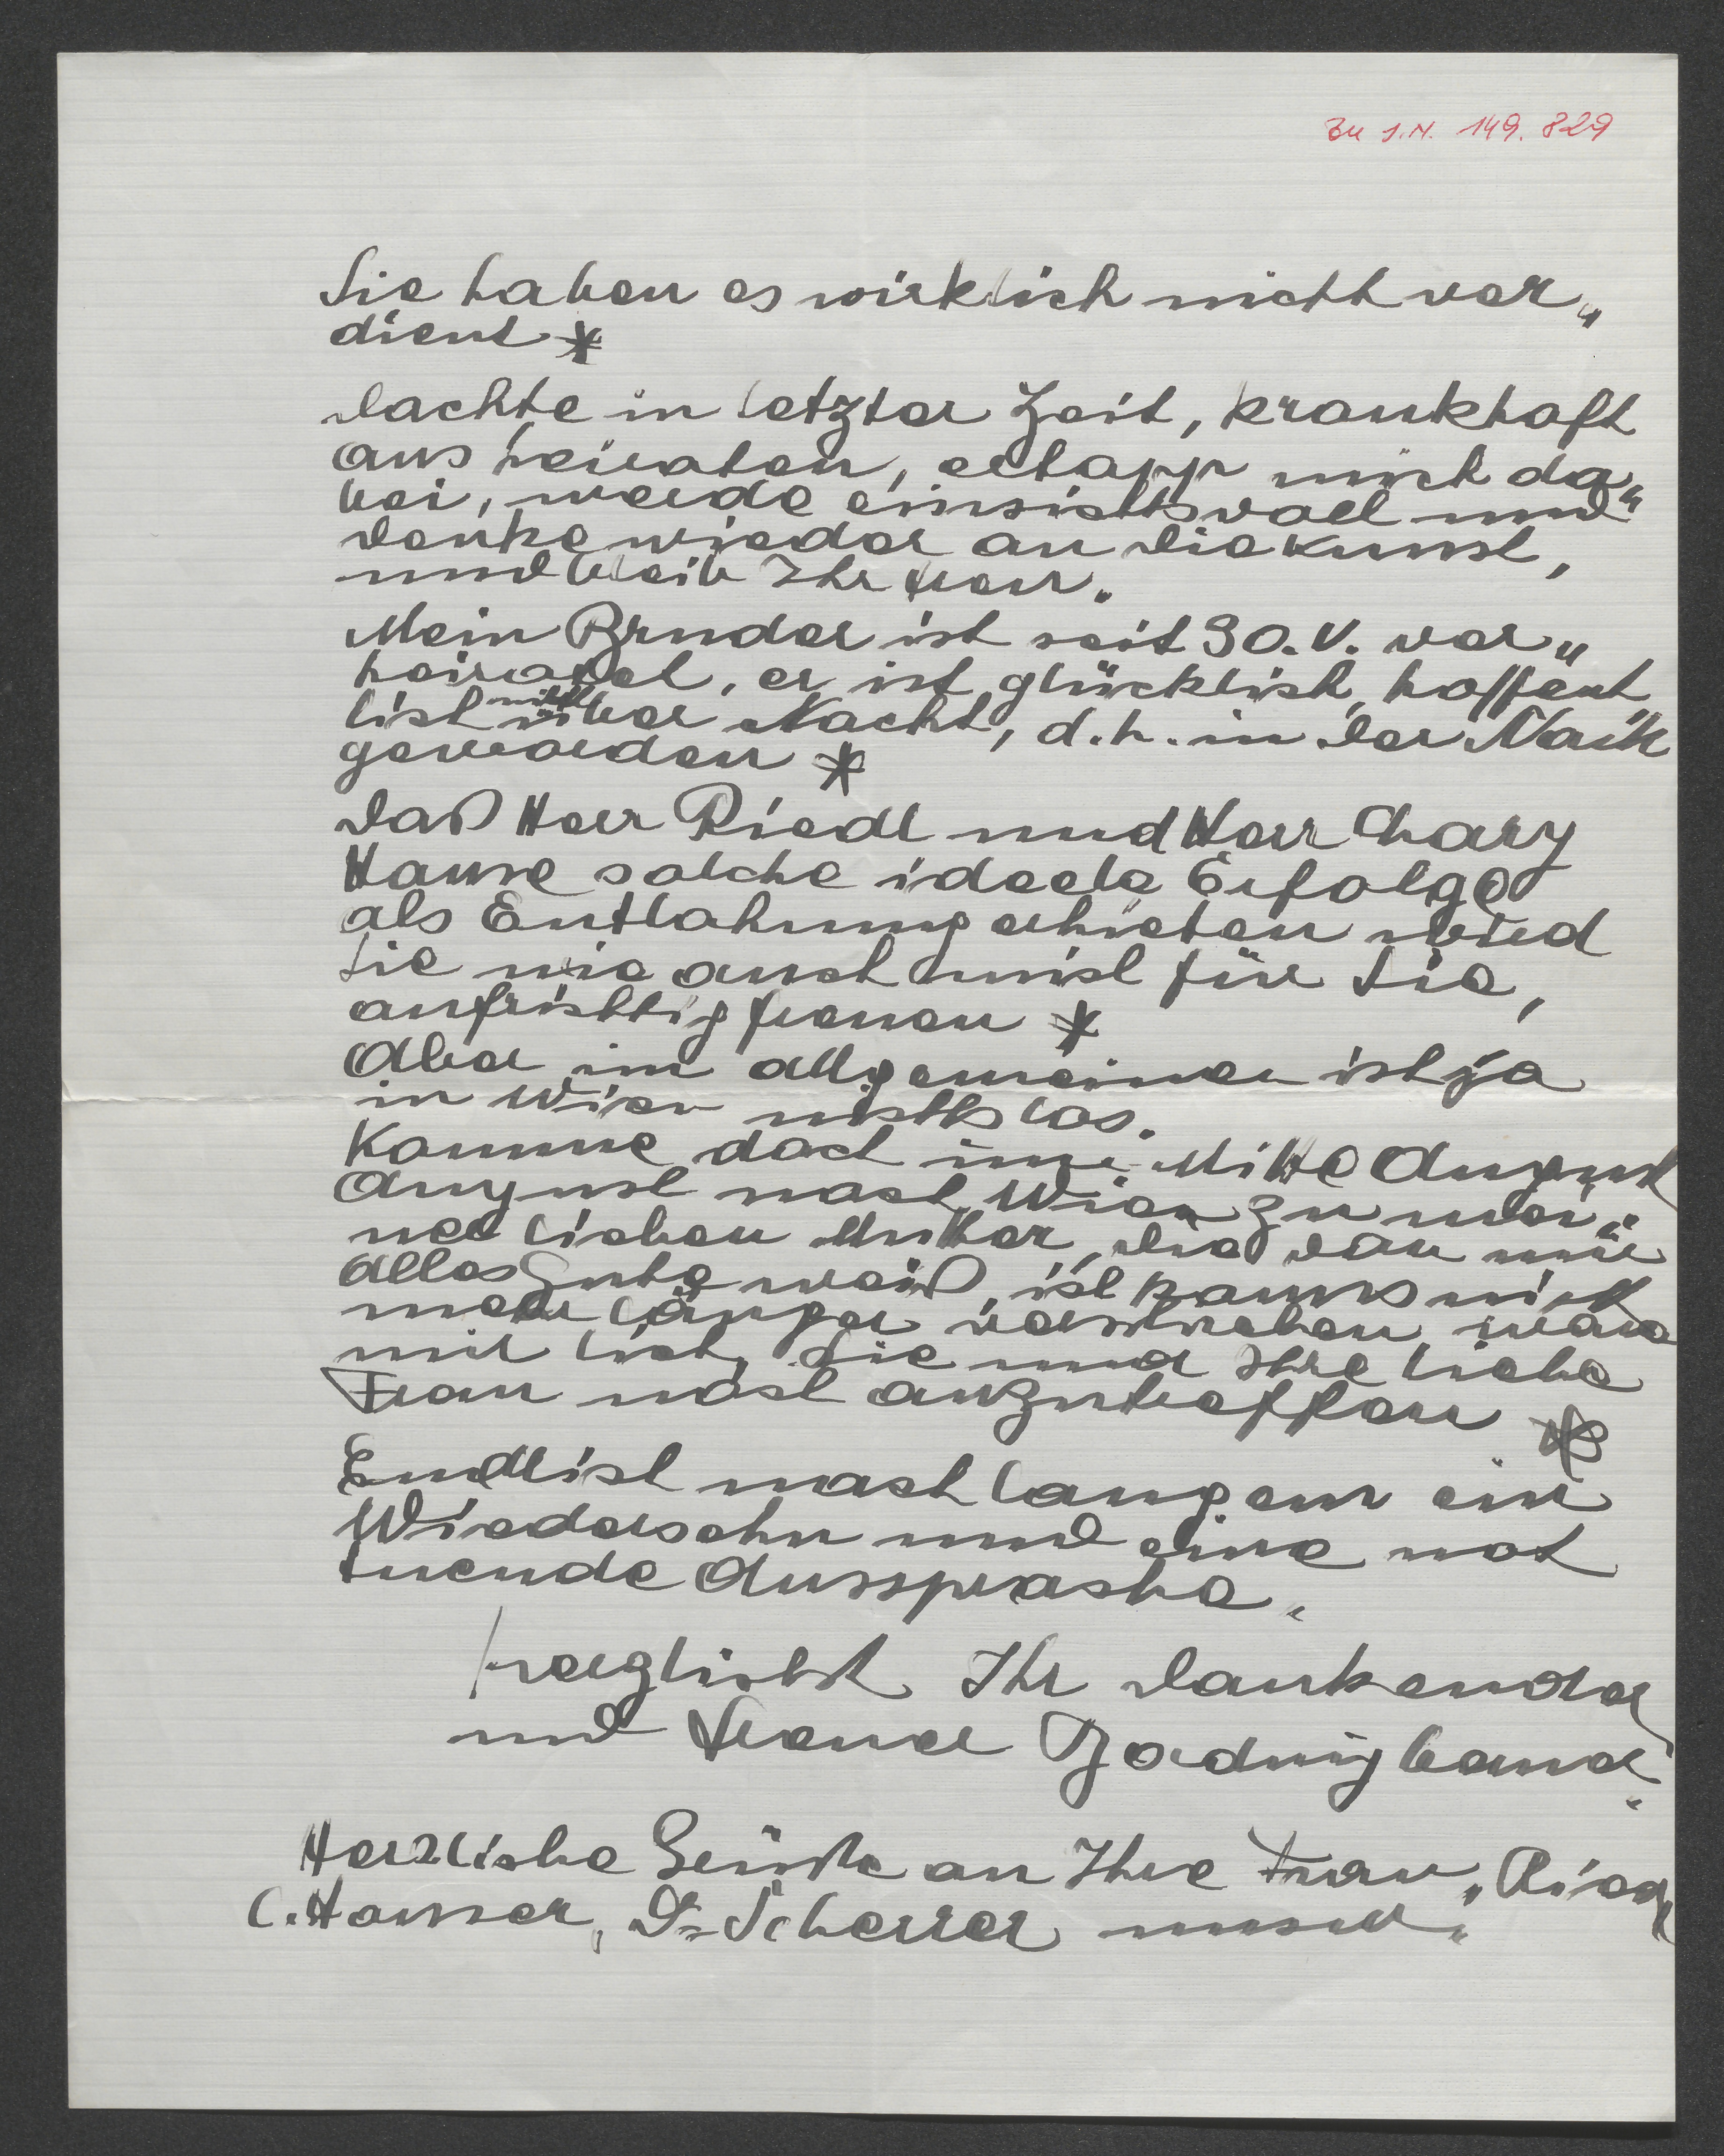 Zu I.N. 149.829
Sie haben es wirklich nicht ver„
dient *
dachte in letzter Zeit, krankhaft
ans heiraten, ertapp mich da„
bei, werde einsichtsvoll und
denke wieder an die Kunst,
und bleib Ihr treu.
Mein Bruder ist seit 30.V. ver„
heiratet, er ist glücklich, hoffent
lich nicht über Nacht, d.h. in der
geworden *
daß Herr Riedl und Herr Chary
solche ideele Erfolge
als Entlohnung erhielten wird
Sie wie auch mich für Sie,
aufrichtig freuen *
Aber im allgemeinen ist ja
in Wien nichts los.
Komme doch Mitte August
August nach Wien zu mei„
ner lieben Mutter, die von mir
alles Gute weiß, ich kanns nicht
mehr länger verschieben, wäre
mir lieb, Sie und Ihre liebe
Frau noch anzutreffen *
Endlich nach langem ein
Wiedersehn und eine not
tuende Aussprache.
herzlichst Ihr dankender
und treuer
Herzliche Grüße an Ihre Frau,
C. Hauser, Dr Scherrer